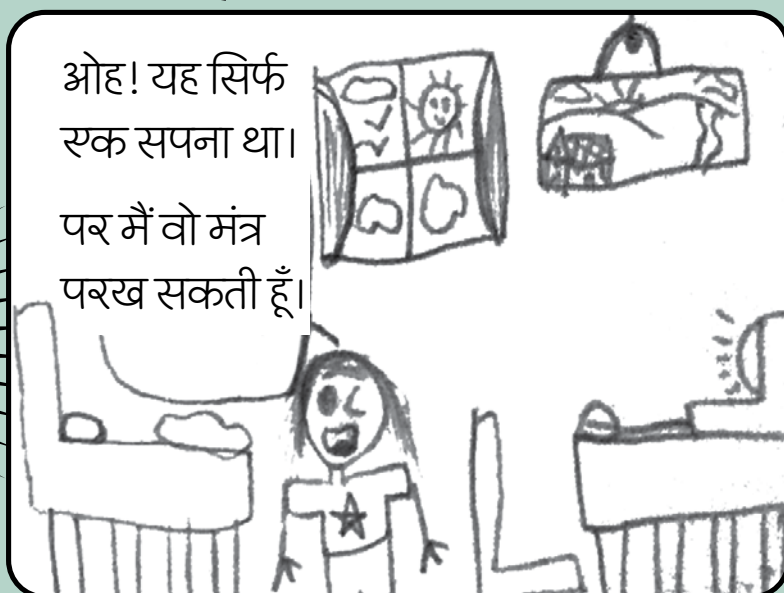 ओह! यह सिर्फ
एक सपना था।
पर मैं वो मंत्र
परख सकती हूँ।